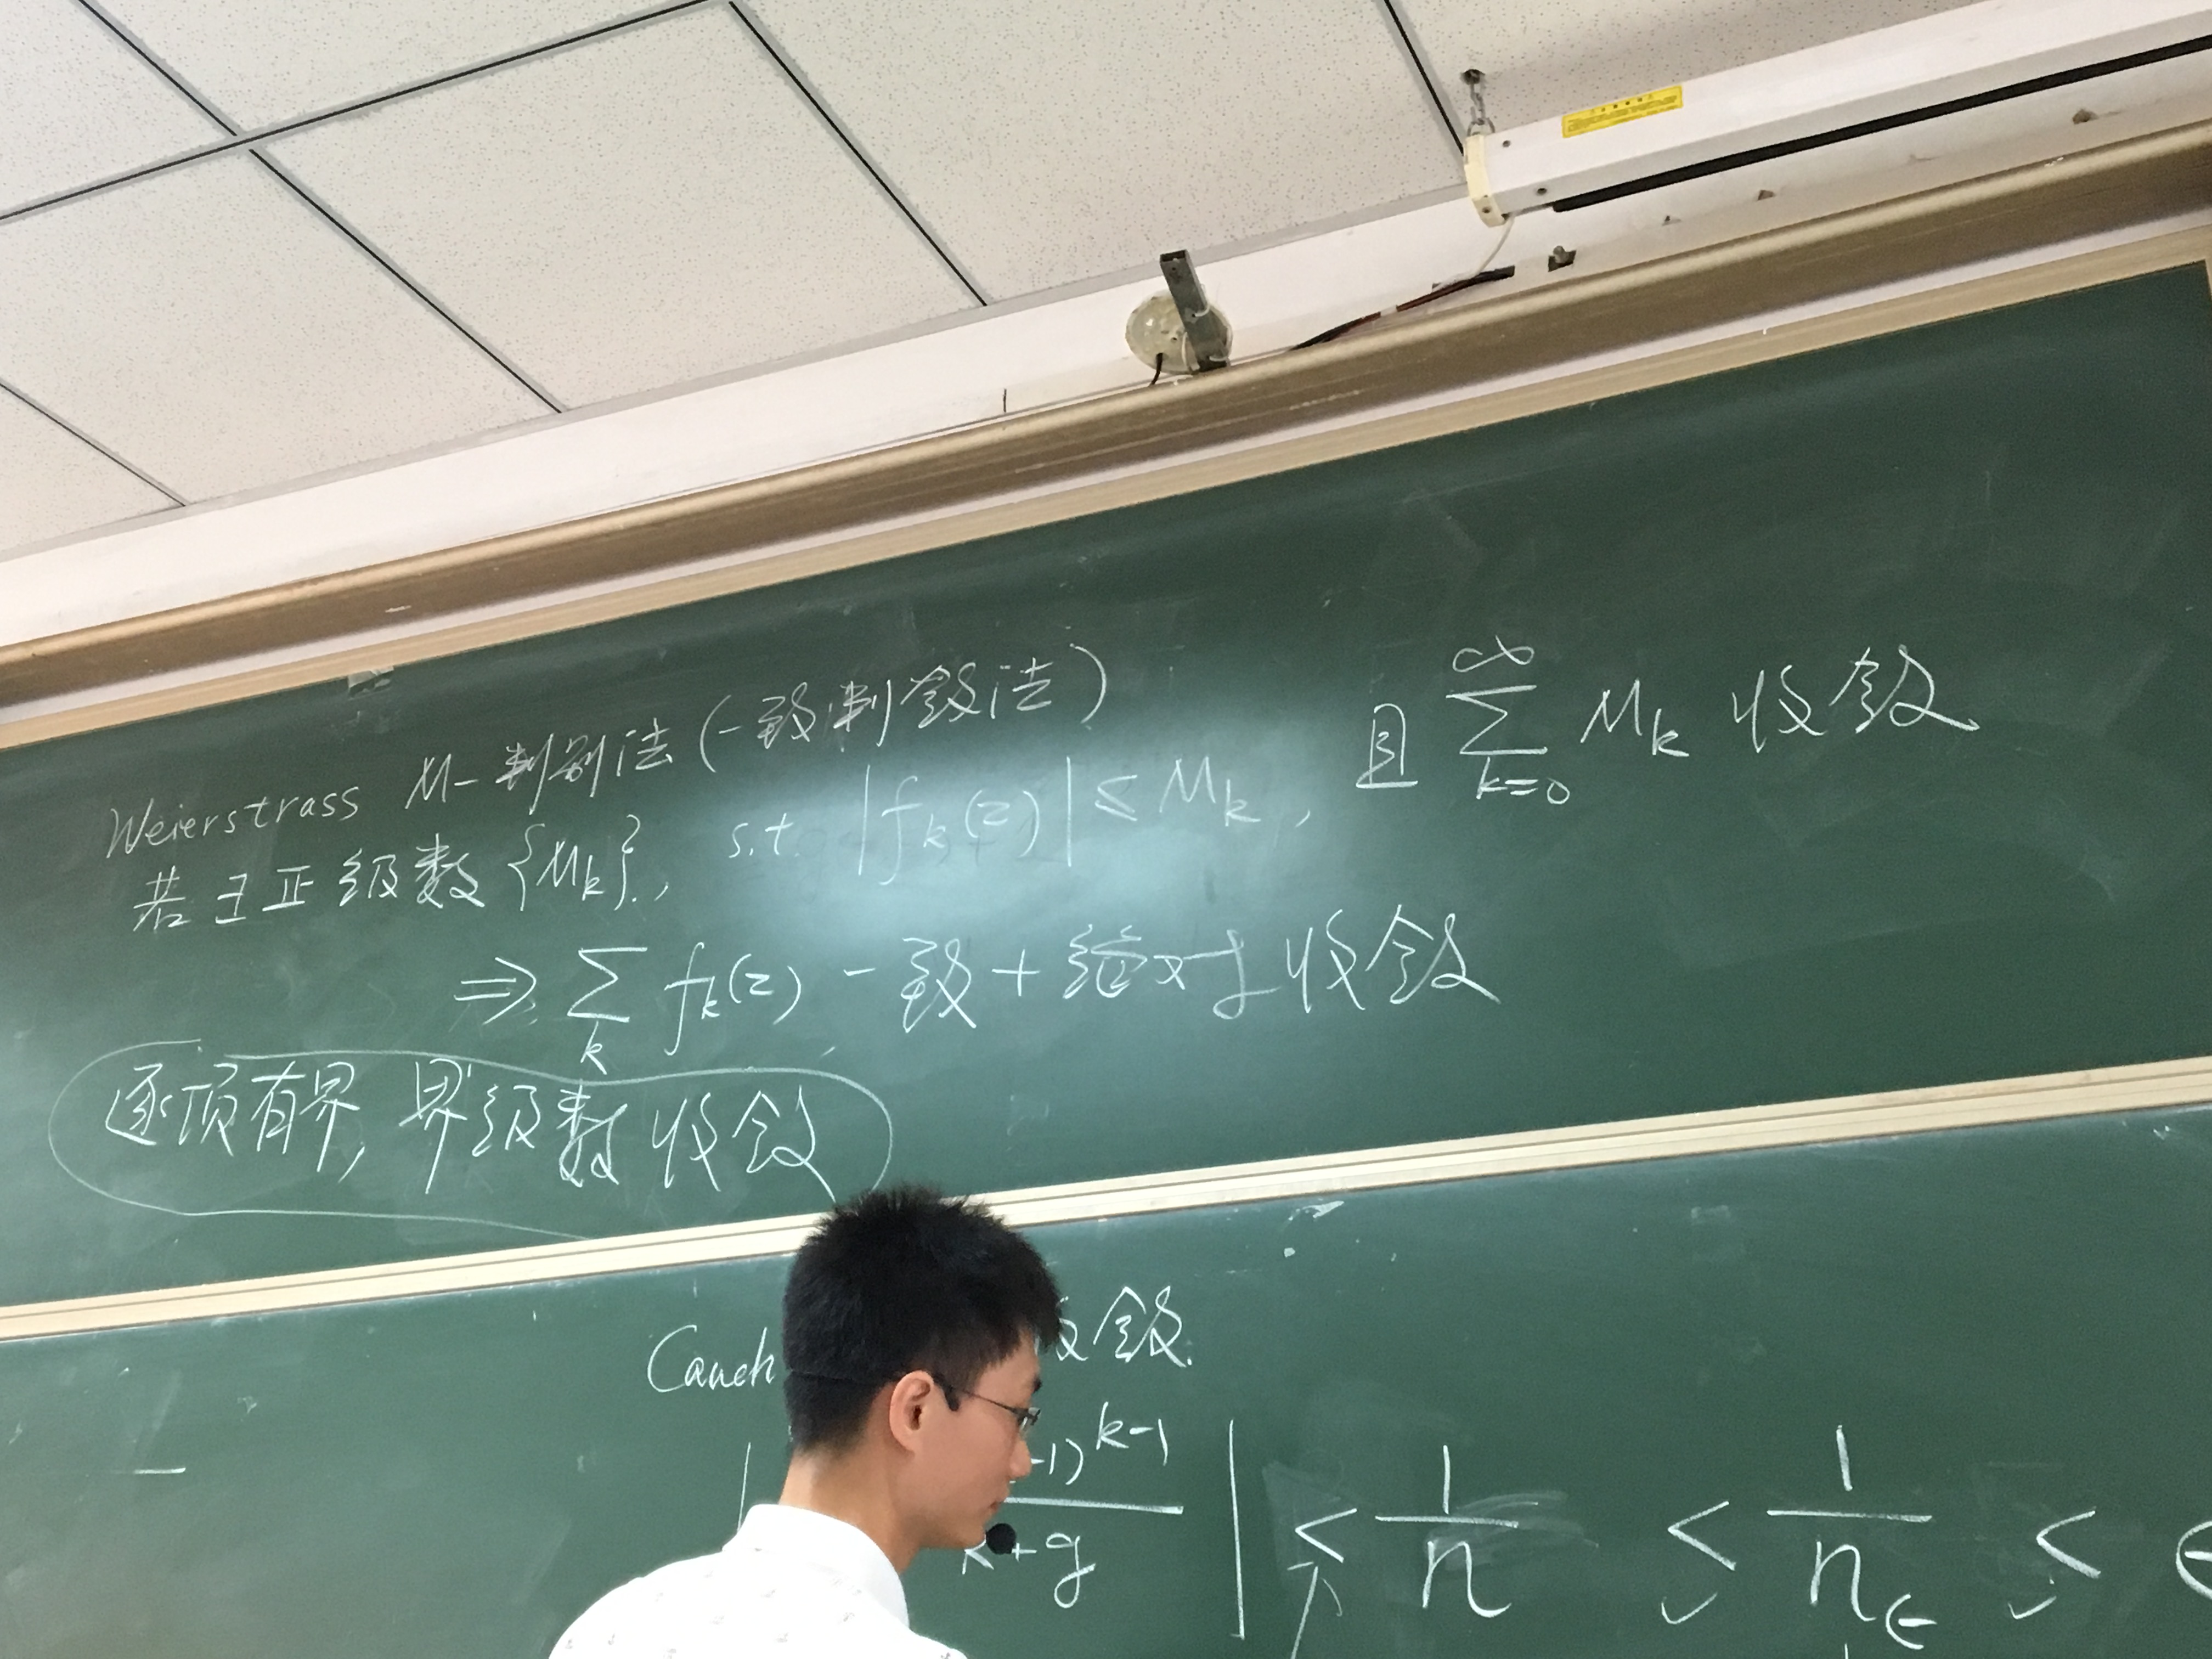 Weierstrass M-判别法(一致判敛法)
若∃正级数{Mk}, s.t. |fk(z)| ≤ Mk, 且 ∑_{k=0}^{∞} Mk 收敛
⇒ ∑_k fk(z) 一致+绝对收敛
逐项有界, 界级数收敛
Cauch 敛.
-1)^{k-1} / +y | ≤ 1/n ≤ 1/n_ϵ ≤ ϵ